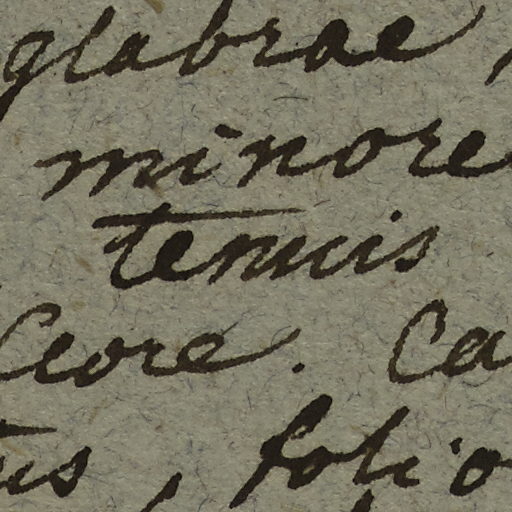 glabrae,
minore
tenuis
Ca
folio